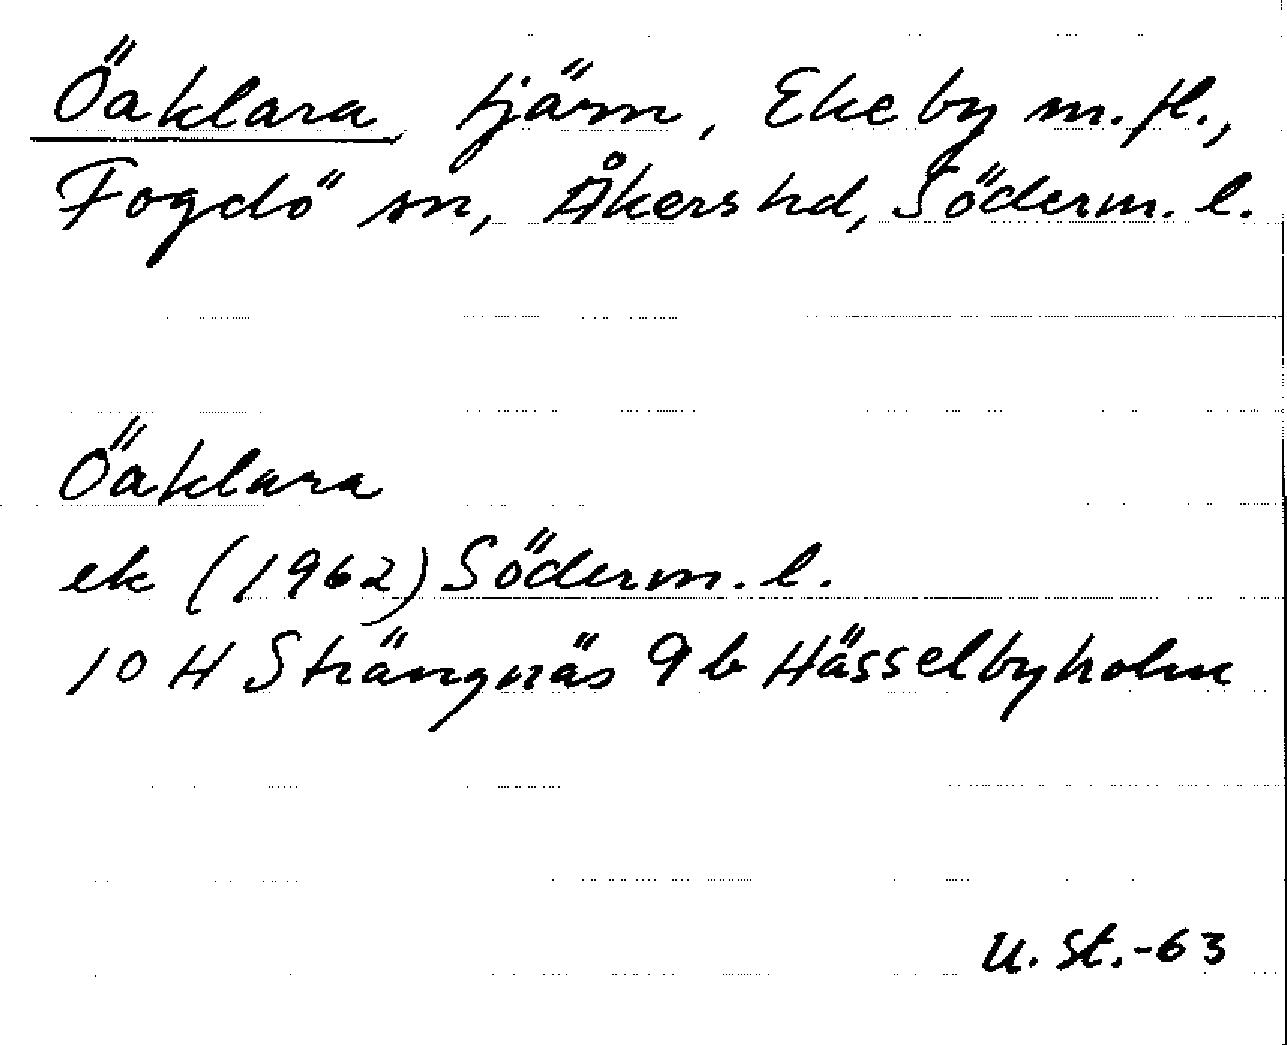 Öaklara tjärn, Ekeby m.fl.,
Fogdö sn, Åkers hd, Söderm. l.
Öaklara
ek (1962) Söderm. l.
10 H Strängnäs 9 b Hässelbyholm
U. St.-63